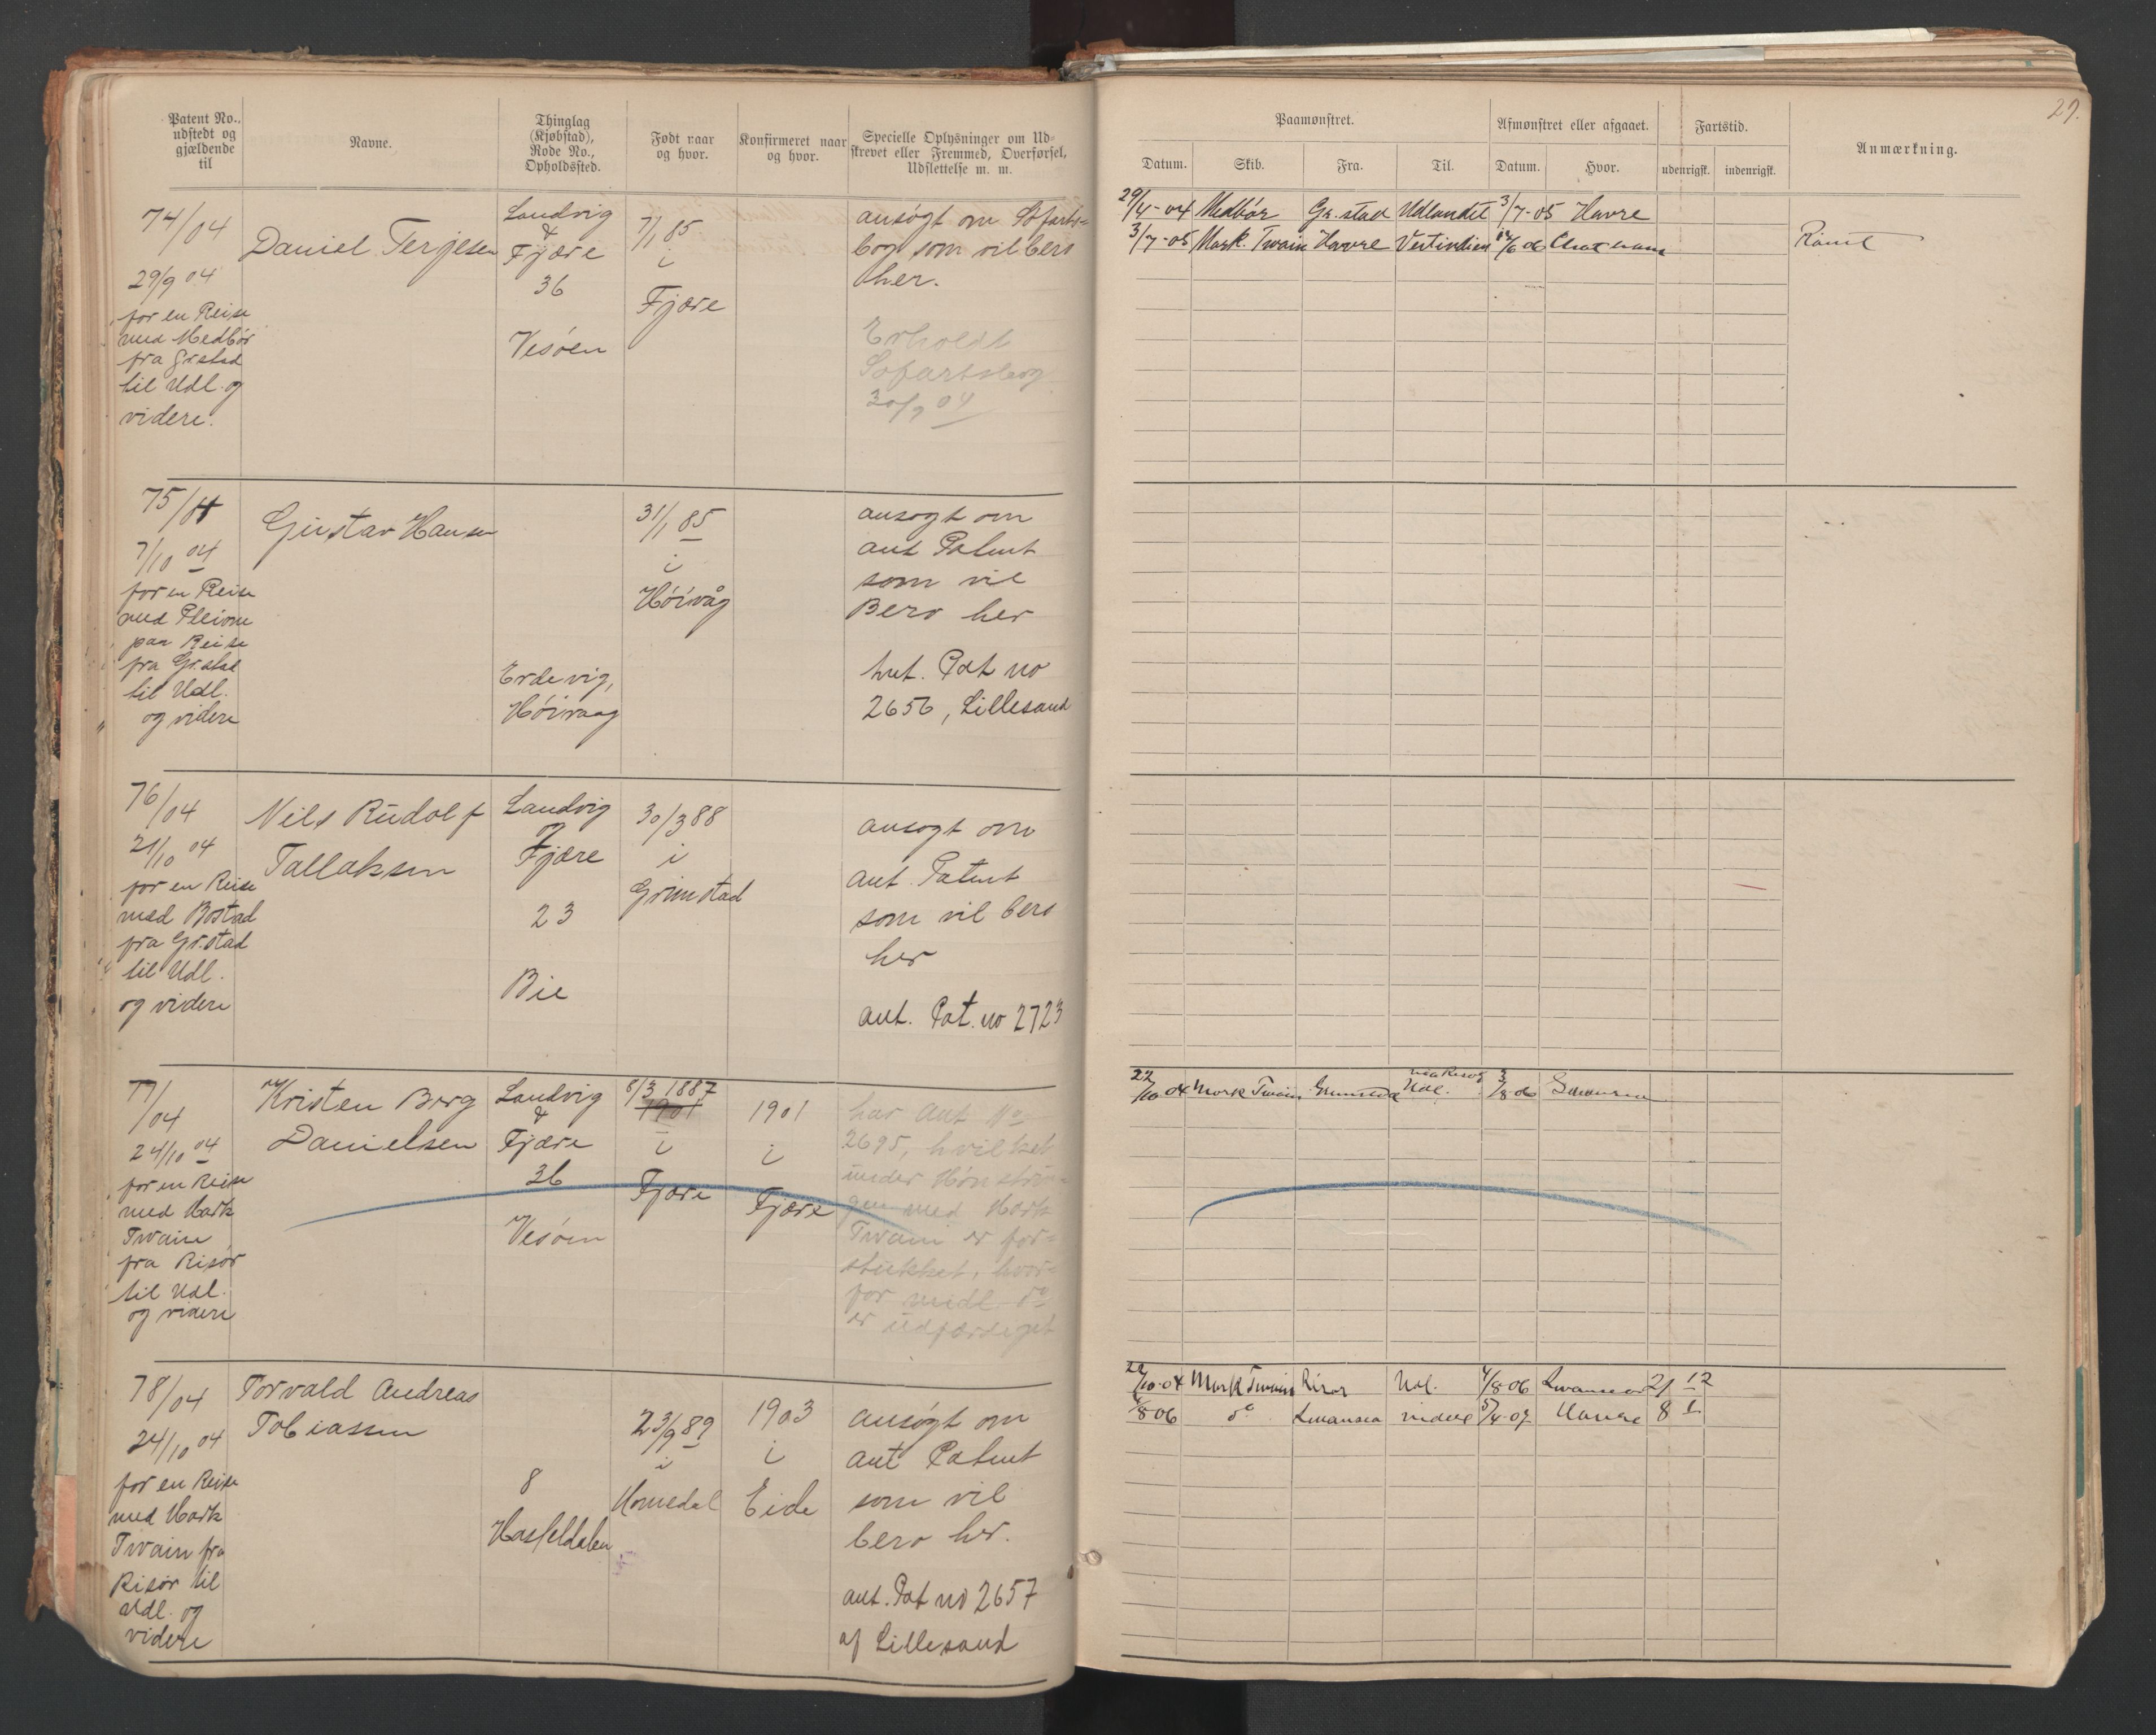 Patent No., udstedt og gjældende til
Navne.
Thinglag (Kjøbstad), Rode No., Opholdssted.
Født naar og hvor.
Konfirmeret naar og hvor.
Specielle Oplysninger om Udskrevet eller Fremmed, Overførsel, Udslettelse m. m.
Paamønstret.
Datum.
Skib.
Fra.
Til.
Afmønstret eller afgaaet.
Datum.
Hvor.
Fartstid.
udenrigsk.
indenrigsk.
Anmærkning.
29.
74/04
29/9 04
for en Reise
med Medbør
fra Grstad
til Udl. og
videre.
Daniel Terjesen
Landvig
&
Fjære
36
Vesøen
7/1 85
i
Fjære
ansøgt om Søfarts-
bog som vil bero
her.
Erholdt
Søfartsbog
30/9 04
29/4-04 Medbør Gr.stad Udlandet 3/7-05 Havre
3/7-05 Mark Twain Havre Vestindien /6 06
75/04
7/10 04
for en Reise
med
paa Reise
fra Gr.stad
til Udl.
og videre
Gustav Hansen
Erdevig,
Høivaag
31/1 85
i
Høivåg
ansøgt om
ant Patent
som vil
Bero her
Pat no
2656, Lillesand
76/04
21/10 04
for en Reise
med Bostad
fra Gr.stad
til Udl.
og videre
Nils Rudolf
Tallaksen
Landvig
og
Fjære
23
Bie
30/3 88
i
Grimstad
ansøgt om
ant. Patent
som vil bero
her
ant. Pat. no 2723
77/04
24/10 04
for en Reise
med Mark
Twain
fra Risør
til Udl.
og videre
Kristen Berg
Danielsen
Landvig
&
Fjære
36
Vesøen
8/3 1887
1901
i
Fjære
1901
i
Fjære
har Ant No
2695, hvilket
under Mønstrin-
gen med Mark
Twain er for-
stukket, hvor-
for midl. do
er udfærdiget
22/10 04 Mark Twain Grimstad Udl. 3/8 06 Swansea
78/04
24/10 04
for en Reise
med Mark
Twain fra
Risør til
Udl. og
videre
Torvald Andreas
Tobiassen
8
Hasseldalen
23/9 89
i
Homedal
1903
i
Eide
ansøgt om
ant Patent
som vil
bero her.
ant. Pat no 2657
af Lillesand
22/10-04 Mark Twain Risør Udl. 4/8-06 Swansea 21 12
4/8 06 do Swansea videre 5/4-07 Havre 8 1